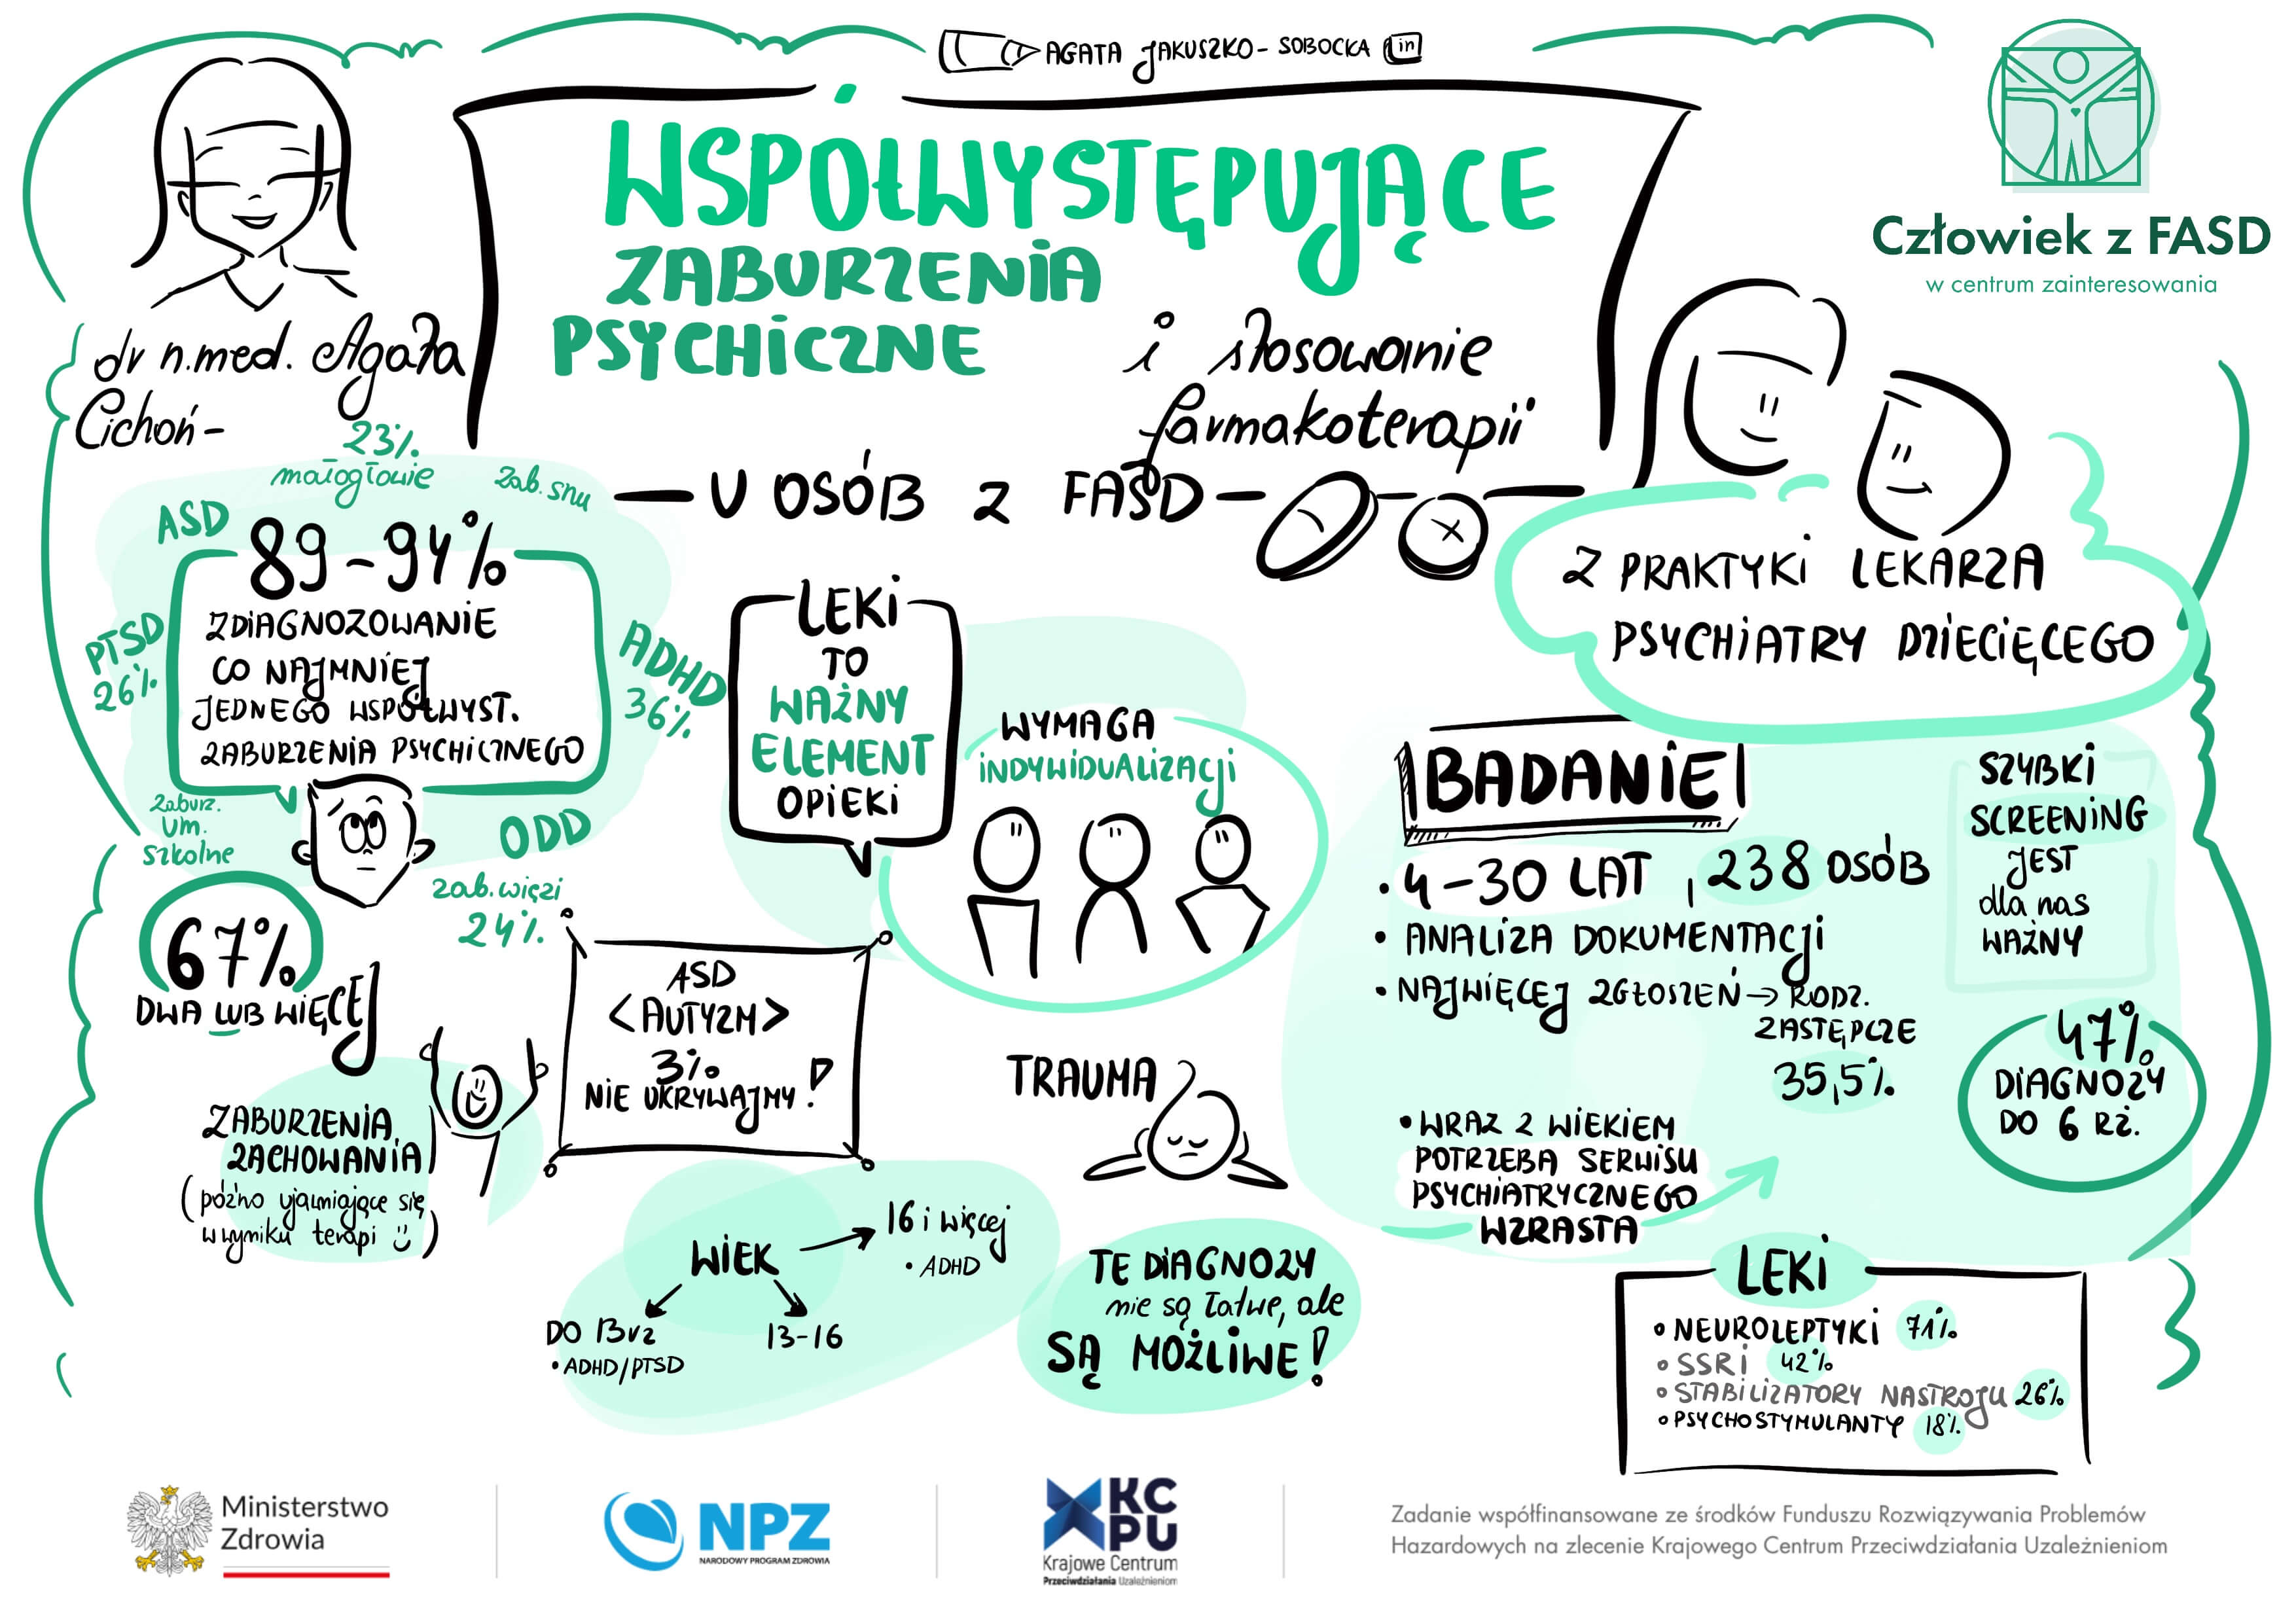 AGATA JAKUSZKO-SOBOCKA in
WSPÓŁWYSTĘPUJĄCE
ZABURZENIA
PSYCHICZNE
i stosowanie
farmakoterapii
U OSÓB Z FASD
Człowiek z FASD
w centrum zainteresowania
dr n.med. Agata
Cichoń-
23%
małogłowie
zab. snu
ASD
PTSD
26%
ADHD
36%
89-94%
ZDIAGNOZOWANIE
CO NAJMNIEJ
JEDNEGO WSPÓŁWYST.
ZABURZENIA PSYCHICZNEGO
zaburz.
um.
szkolne
ODD
zab. więzi
24%
67%
DWA LUB WIĘCEJ
ZABURZENIA
ZACHOWANIA
(późno ujawniające się
w wyniku terapi )
LEKI
TO
WAŻNY
ELEMENT
OPIEKI
WYMAGA
INDYWIDUALIZACJI
ASD
<AUTYZM>
3%
NIE UKRYWAJMY!
TRAUMA
WIEK
16 i więcej
• ADHD
DO 13 rż
• ADHD/PTSD
13-16
TE DIAGNOZY
nie są łatwe, ale
SĄ MOŻLIWE!
Z PRAKTYKI LEKARZA
PSYCHIATRY DZIECIĘCEGO
BADANIE
• 4-30 LAT, 238 OSÓB
• ANALIZA DOKUMENTACJI
• NAJWIĘCEJ ZGŁOSZEŃ → RODZ.
ZASTĘPCZE
35,5%
• WRAZ Z WIEKIEM
POTRZEBA SERWISU
PSYCHIATRYCZNEGO
WZRASTA
SZYBKI
SCREENING
JEST
dla nas
WAŻNY
47%
DIAGNOZY
DO 6 RŻ.
LEKI
• NEUROLEPTYKI 71%
• SSRI 42%
• STABILIZATORY NASTROJU 26%
• PSYCHOSTYMULANTY 18%
Ministerstwo
Zdrowia
NPZ
NARODOWY PROGRAM ZDROWIA
KC
PU
Krajowe Centrum
Przeciwdziałania Uzależnieniom
Zadanie współfinansowane ze środków Funduszu Rozwiązywania Problemów
Hazardowych na zlecenie Krajowego Centrum Przeciwdziałania Uzależnieniom